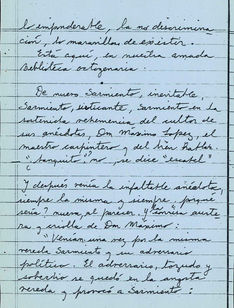 lo imponderable, la no discrimina
ción, lo maravilloso de existir.
Está aquí, en nuestra amada
Biblioteca octogenaria.
De nuevo Sarmiento, inevitable,
Sarmiento, visitante, Sarmiento en la
sostenida vehemencia del cultor de
sus anécdotas, Don Máximo Lopez, el
maestro carpintero y del bien hablar.
"banquito" no, se dice "escabel"
Y después venía la infaltable anécdota,
siempre la misma y siempre ¿porqué
sería? nueva, al parecer. Y sonrisa
y criolla de Don Máximo:
"Venían una vez por la misma
vereda Sarmiento y su adversario
político. El adversario, torpe y
soberbio se quedó en la angosta
vereda y provocó a Sarmiento: